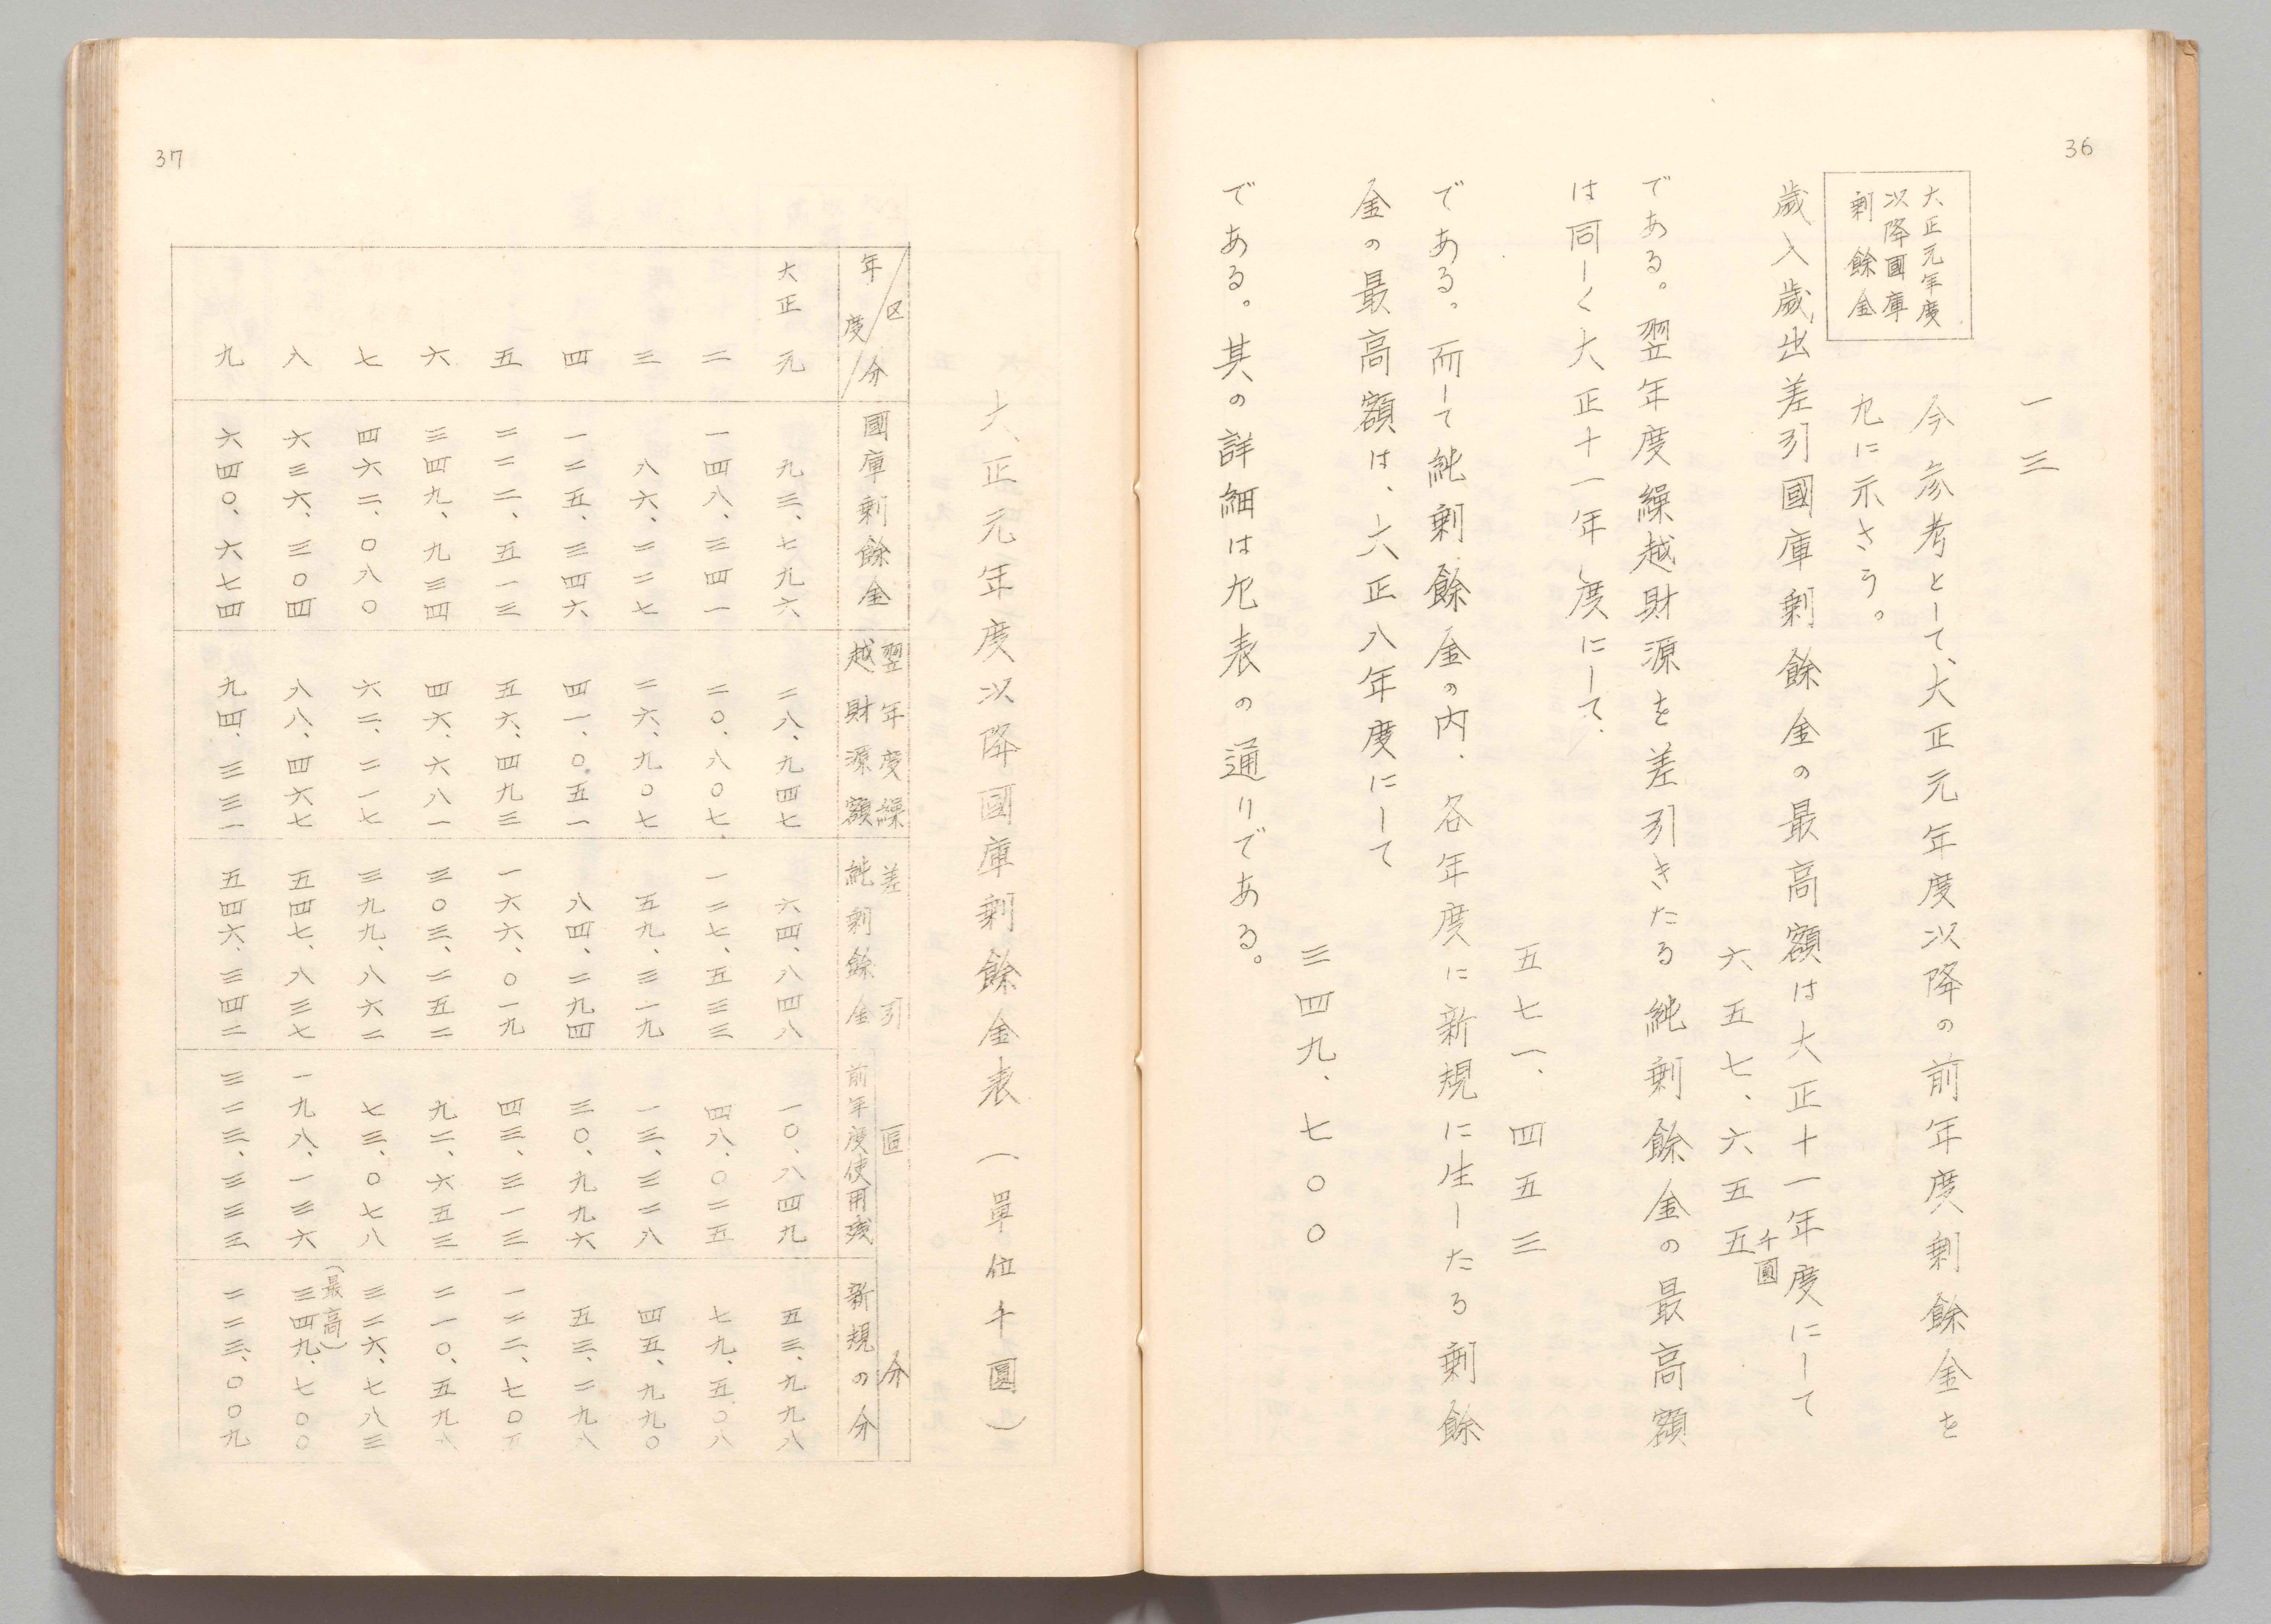 36
一三
大正元年度
以降國庫
剰餘金
今参考として、大正元年度以降の前年度剰餘金を
左に示さう。
歳入歳出差引國庫剰餘金の最高額は大正十一年度にして
六五七、六五五千圓
である。翌年度繰越財源を差引きたる純剰餘金の最高額
は同じく大正十一年度にして、
五七一、四五三
である。而して純剰餘金の内、各年度に新規に生じたる剰餘
金の最高額は、大正八年度にして
三四九、七〇〇
である。其の詳細は左表の通りである。
37
大正元年度以降國庫剰餘金表(單位千圓)
区分/年度 國庫剰餘金 翌年度繰越財源額 差引純剰餘金 區分 前年度使用残 新規の分
大正元 九三、七九六 二八、九四七 六四、八四八 一〇、八四九 五三、九九八
二 一四八、三四一 二〇、八〇七 一二七、五三三 四八、〇二五 七九、五〇八
三 八六、二二七 二六、九〇七 五九、三一九 一三、三二八 四五、九九〇
四 一二五、三四六 四一、〇五一 八四、二九四 三〇、九九六 五三、二九八
五 二二二、五一三 五六、四九三 一六六、〇一九 四三、三一三 一二二、七〇五
六 三四九、九三四 四六、六八一 三〇三、二五二 九二、六五三 二一〇、五九八
七 四六二、〇八〇 六二、二一七 三九九、八六二 七三、〇七八 三二六、七八三
八 六三六、三〇四 八八、四六七 五四七、八三七 一九八、一三六 (最高)三四九、七〇〇
九 六四〇、六七四 九四、三三一 五四六、三四二 三二三、三三三 二二三、〇〇九